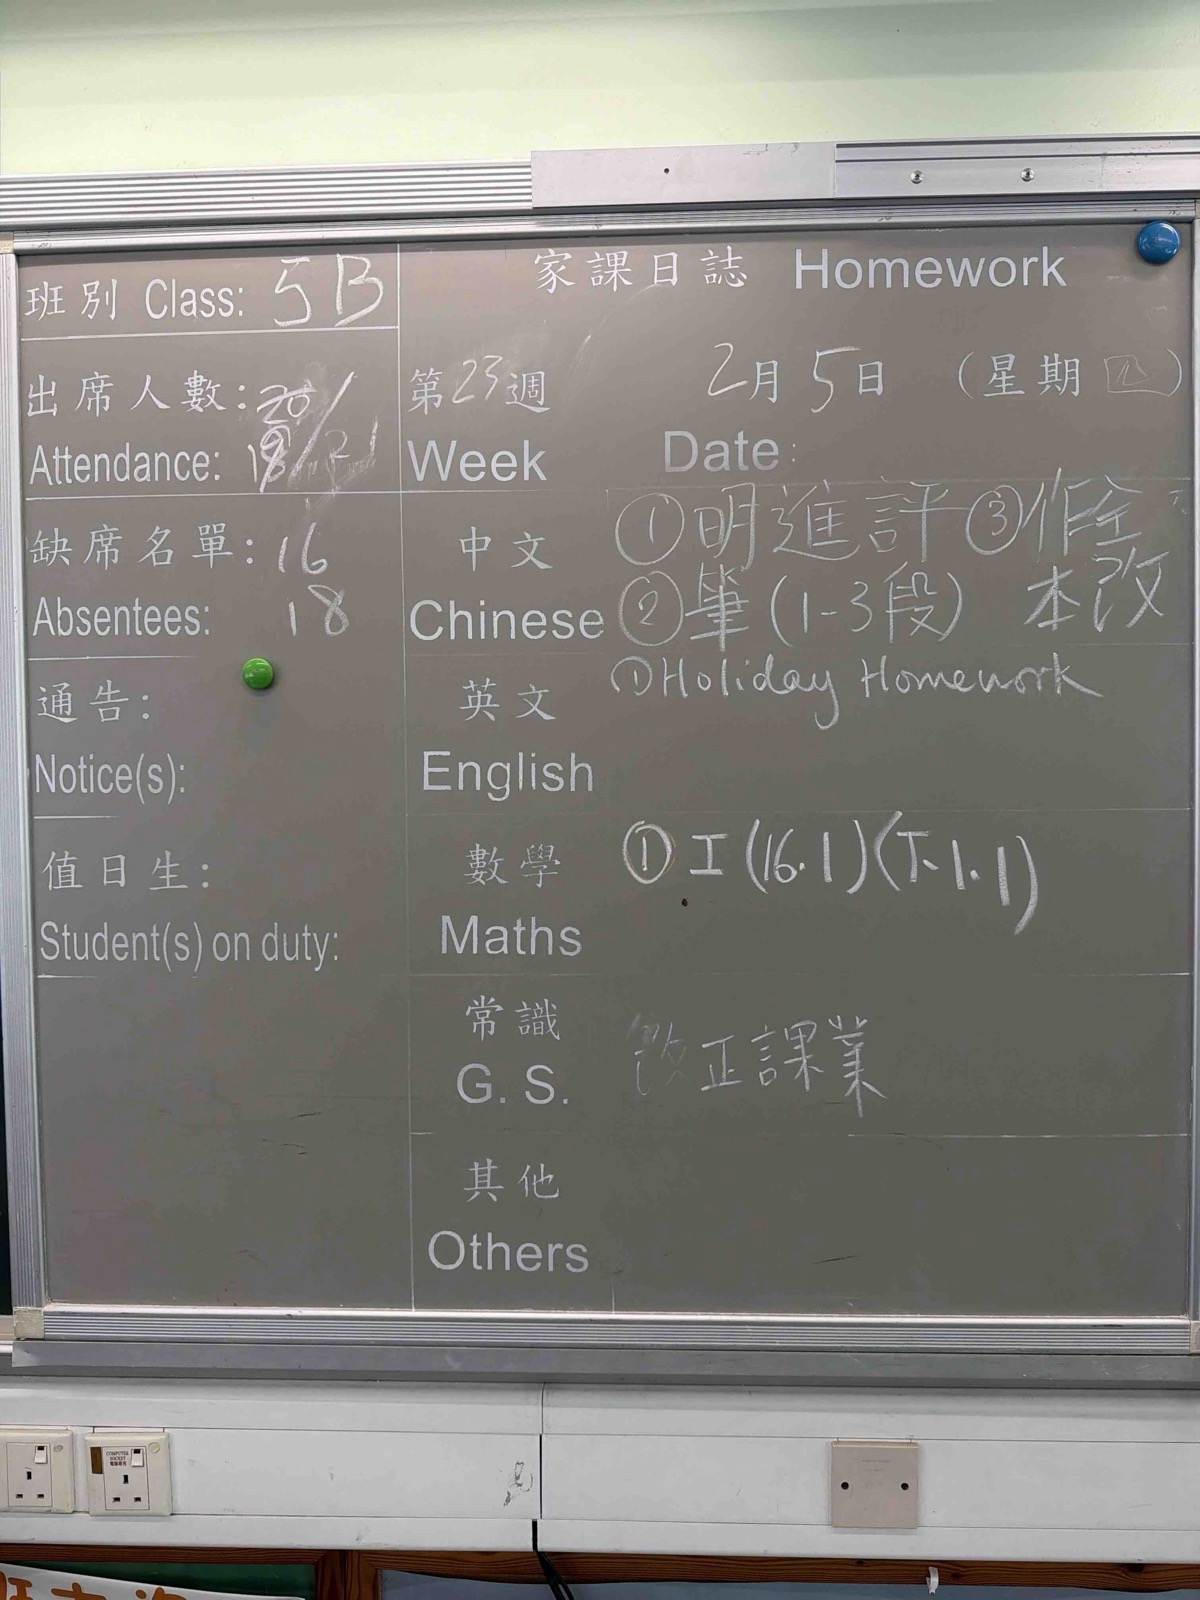 班別 Class: 5B
出席人數:
Attendance:
缺席名單: 16
Absentees: 18
通告:
Notice(s):
值日生:
Student(s) on duty:
家課日誌 Homework
第23週 2月5日 (星期四)
Week Date:
中文 ①明進評 ③作全
Chinese ②筆(1-3段) 本改
英文 ①Holiday Homework
English
數學 ①工(16.1)(下.1.1)
Maths
常識 改正課業
G. S.
其他
Others
COMPUTER
SOCKET